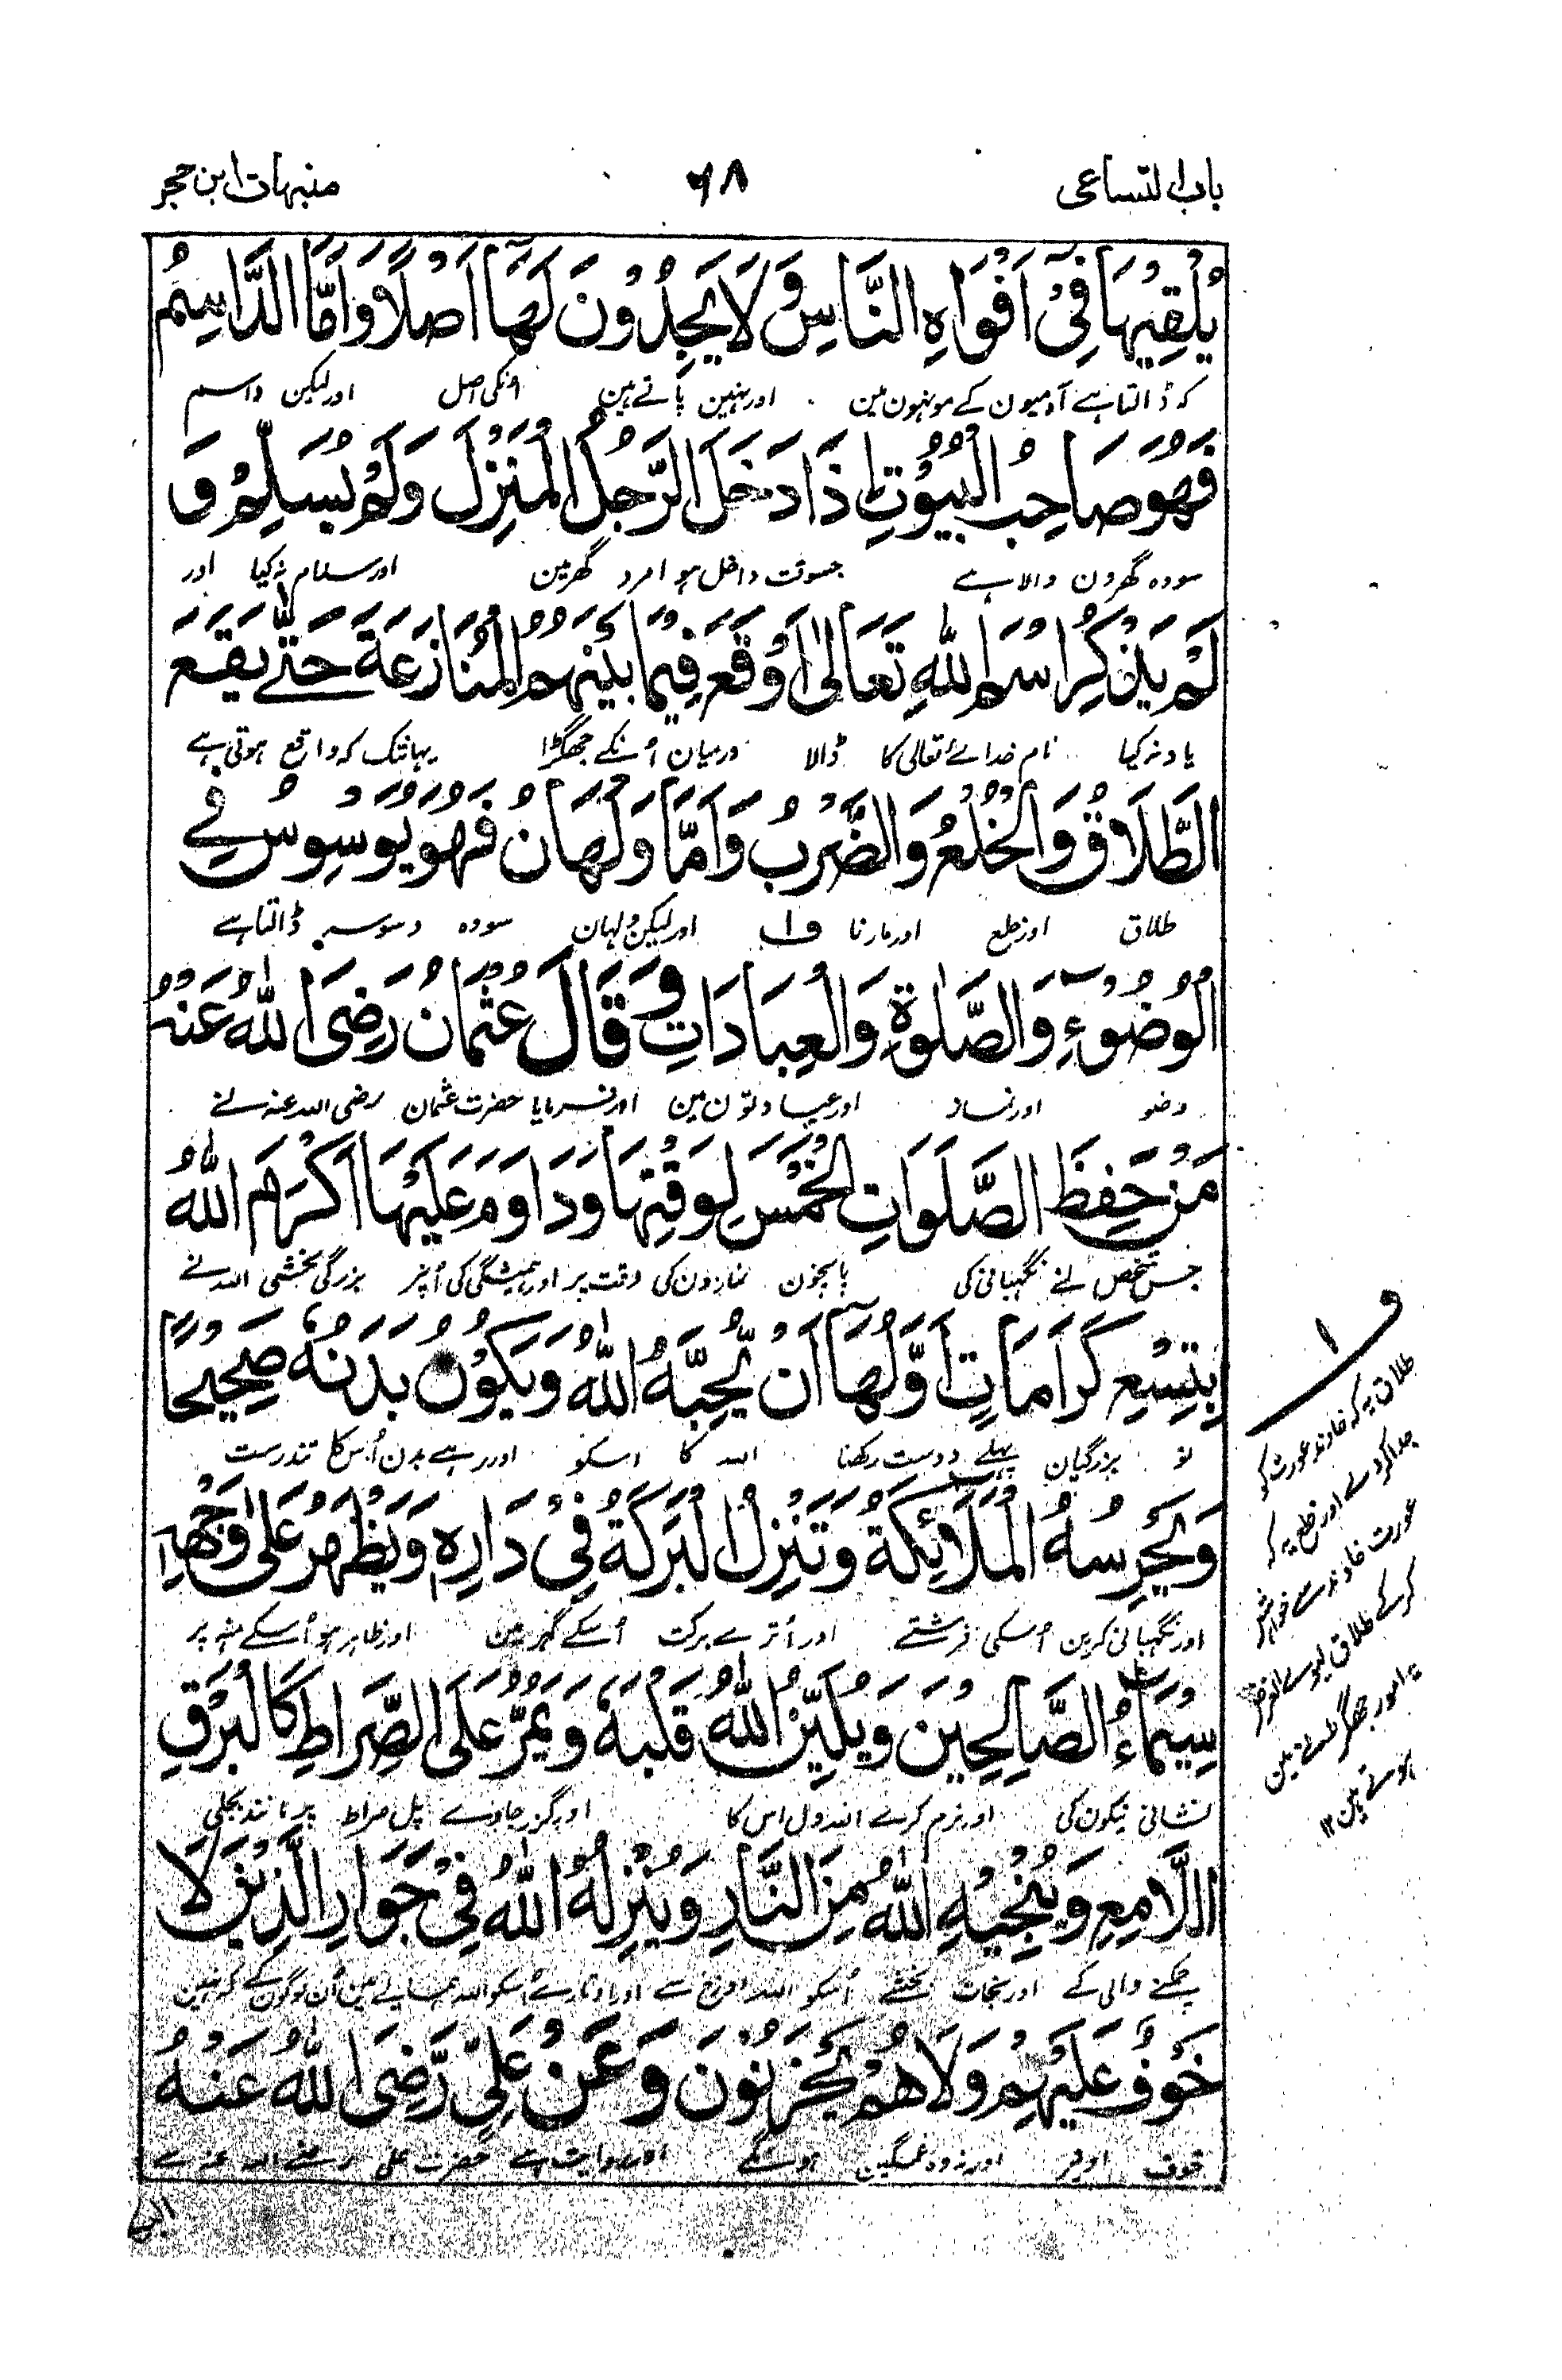 باب التساعی ۶۸ منبہات ابن حجر
يُلْقِيْهَا فِيْٓ اَفْوَاهِ النَّاسِ وَلَا يَجِدُوْنَ لَهَآ اَصْلًا وَاَمَّا الدَّاسِمُ
کہ ڈالتا ہے آدمیون کے مونہون مین اور نہین پاتے ہین اونکی اصل اور لیکن داسم
فَهُوَ صَاحِبُ الْبُيُوْتِ اِذَا دَخَلَ الرَّجُلُ الْمَنْزِلَ وَلَمْ يُسَلِّمْ وَ
سو وہ گھرون والا ہے جسوقت داخل ہوا مرد گھر مین اور سلام نہ کیا اور
لَمْ يَذْكُرِ اسْمَ اللّٰهِ تَعَالٰى اَوْقَعَ فِيْمَا بَيْنَهُمُ الْمُنَازَعَةَ حَتّٰى يَقَعَ
یاد نہ کیا نام خدائے تعالی کا ڈالا درمیان اُنکے جھگڑا یہانتک کہ واقع ہوتی ہے
الطَّلَاقُ وَالْخُلْعُ وَالضَّرْبُ وَاَمَّا وَلْهَانُ فَهُوَ يُوَسْوِسُ فِي
طلاق اور خلع اور مارنا ف۱ اور لیکن ولہان سو وہ وسوسہ ڈالتا ہے
الْوُضُوْٓءِ وَالصَّلٰوةِ وَالْعِبَادَاتِ وَقَالَ عُثْمَانُ رَضِىَ اللّٰهُ عَنْهُ
وضو اور نماز اور عبادتون مین اور فرمایا حضرت عثمان رضی اللہ عنہ نے
مَنْ حَفِظَ الصَّلَوَاتِ الْخَمْسَ لِوَقْتِهَا وَدَاوَمَ عَلَيْهَا اَكْرَمَهُ اللّٰهُ
جس شخص نے نگہبانی کی پانچون نمازون کی وقت پر اور ہمیشگی کی اُنپر بزرگی بخشی اللہ نے
بِتِسْعِ كَرَامَاتٍ اَوَّلُهَآ اَنْ يُّحِبَّهُ اللّٰهُ وَيَكُوْنُ بَدَنُهٗ صَحِيْحًا
نو بزرگیان پہلے دوست رکھنا اللہ کا اسکو اور رہے بدن اُس کا تندرست
وَيَحْرِسُهُ الْمَلَآئِكَةُ وَتَنْزِلُ الْبَرَكَةُ فِيْ دَارِهٖ وَيَظْهَرُ عَلٰى وَجْهِهٖ
اور نگہبانی کرین اُسکی فرشتے اور اُترے برکت اُسکے گھر مین اور ظاہر ہو اُسکے منہ پر
سِيْمَآءُ الصَّالِحِيْنَ وَيُلَيِّنُ اللّٰهُ قَلْبَهٗ وَيَمُرُّ عَلَى الصِّرَاطِ كَالْبَرْقِ
نشانی نیکون کی اور نرم کرے اللہ دل اس کا اور گزر جاوے پل صراط پر مانند بجلی
الَّلامِعِ وَيُنْجِيْهِ اللّٰهُ مِنَ النَّارِ وَيُنْزِلُهُ اللّٰهُ فِيْ جَوَارِ الَّذِيْنَ لَا
چمکنے والی کے اور نجات بخشے اُسکو اللہ دوزخ سے اور اوتارے اُسکو اللہ ہمسایے مین اُن لوگون کے کہ نہین
خَوْفٌ عَلَيْهِمْ وَلَا هُمْ يَحْزَنُوْنَ وَعَنْ عَلِيٍّ رَّضِىَ اللّٰهُ عَنْهُ
خوف اونپر اور نہ وہ غمگین ہونگے اور روایت ہے حضرت علی رضی اللہ عنہ سے
ف۱
طلاق یہ کہ خاوند عورت کو
جدا کر دے اور خلع یہ کہ
عورت خاوند سے
کرکے طلاق لیوے
یہ امور جھگڑے مین
ہوتے ہین ۱۲